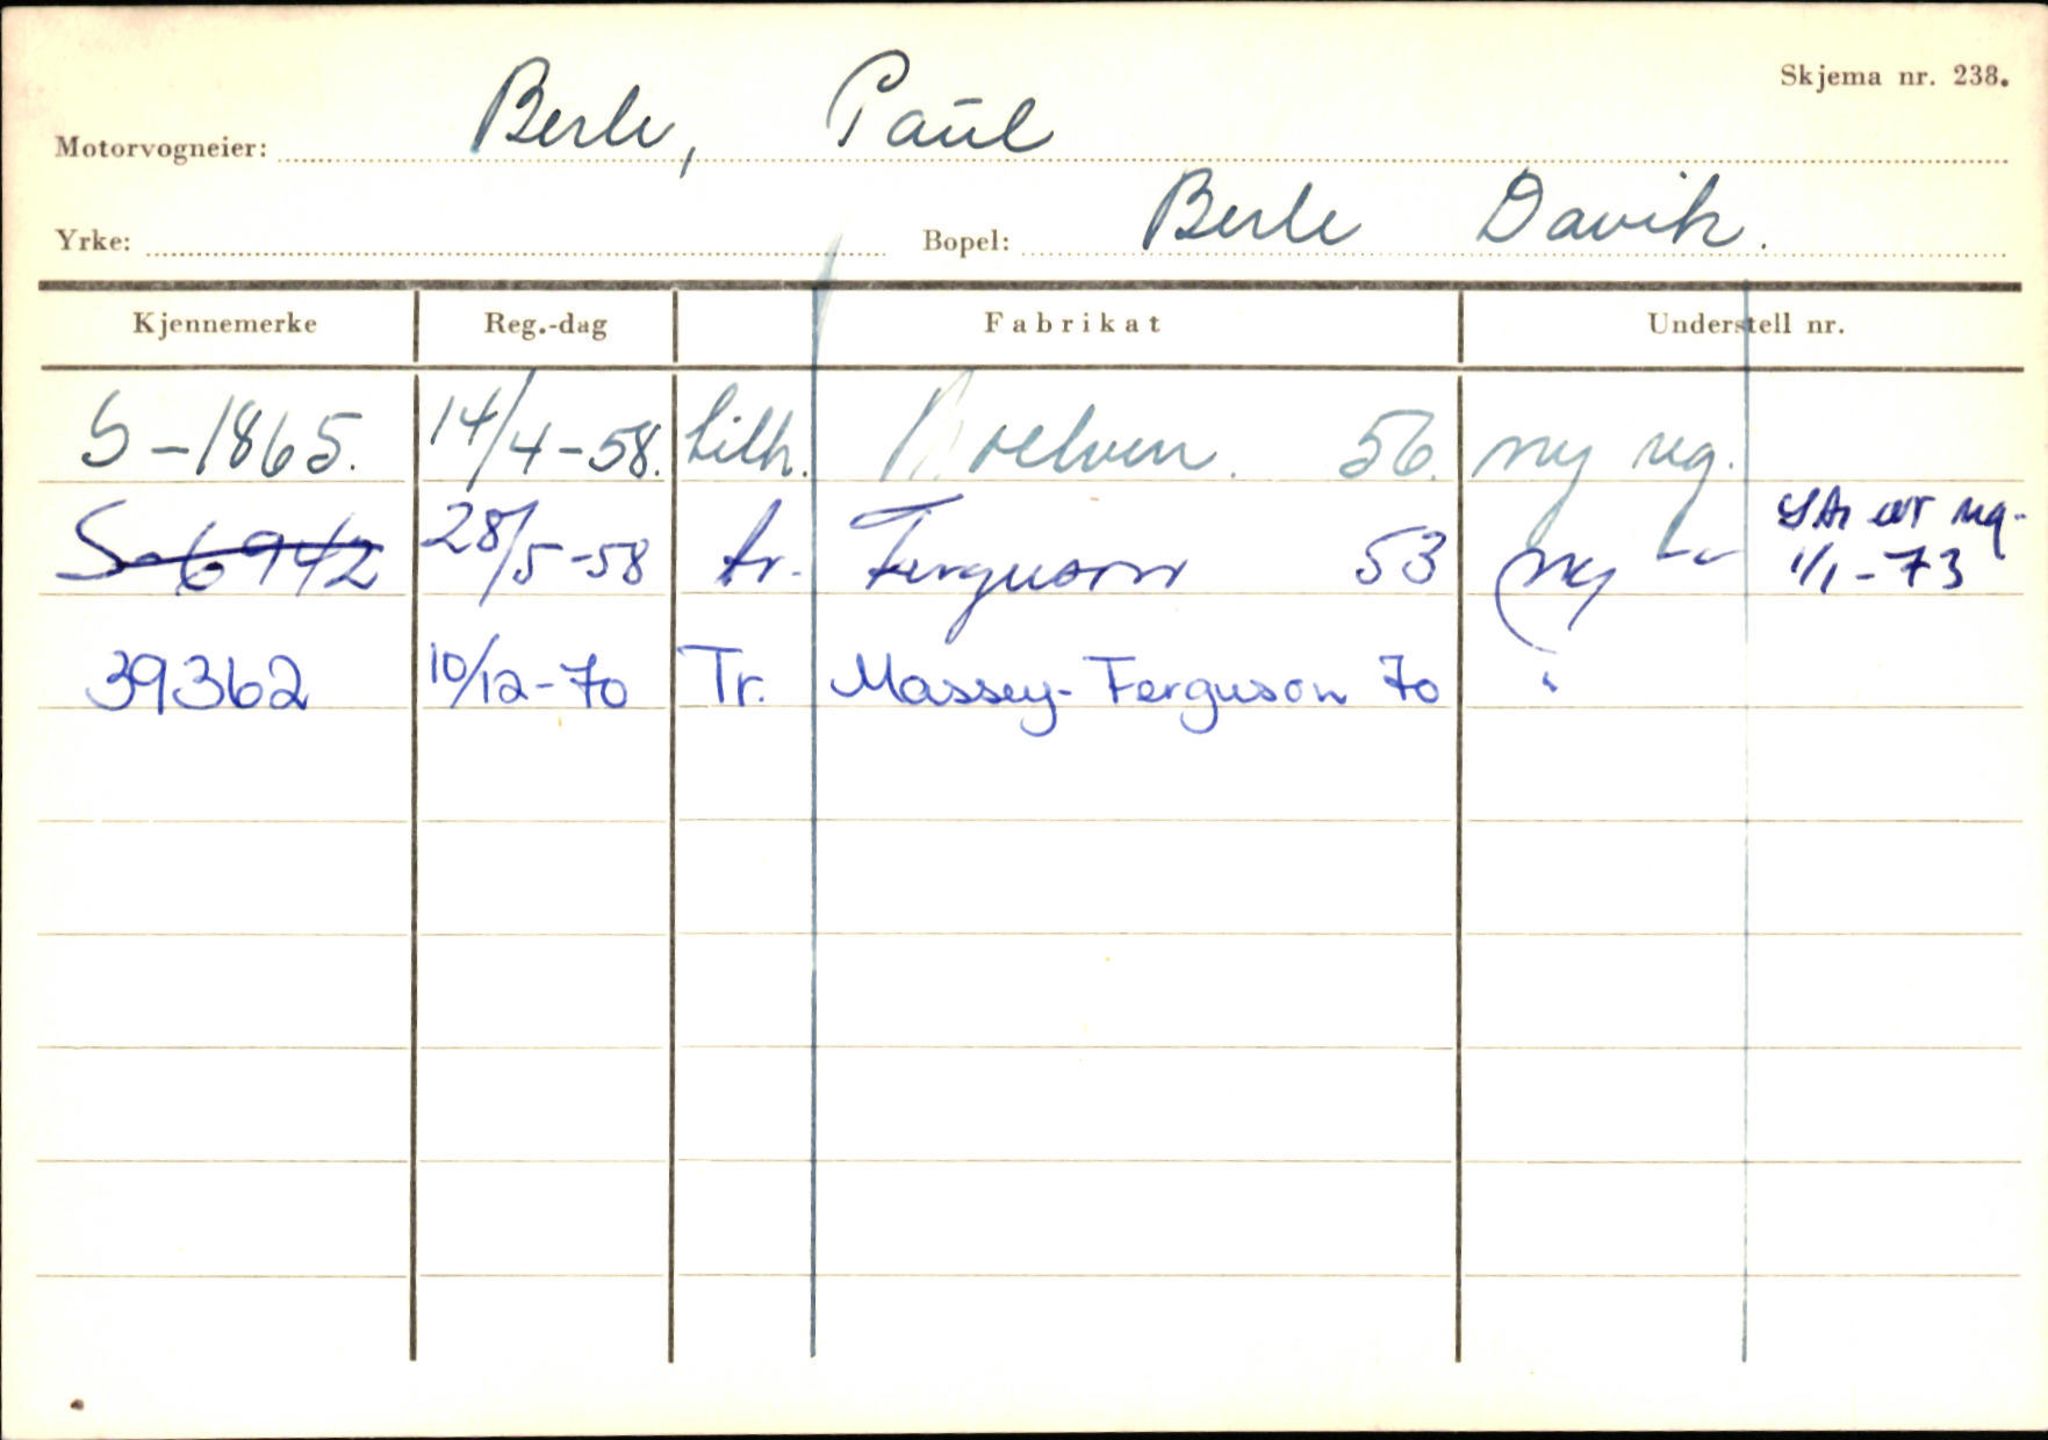 Skjema nr. 238.
Motorvogneier: Berle, Paul
Yrke: Bopel: Berle Davik.
Kjennemerke Reg.-dag Fabrikat Understell nr.
S-1865. 14/4-58. Tilh. Moelven. 56. ny reg.
S-6942 28/5-58 tr. Ferguson 53 ny reg. 1/1-73
39362 10/12-70 Tr. Massey-Ferguson 70 "